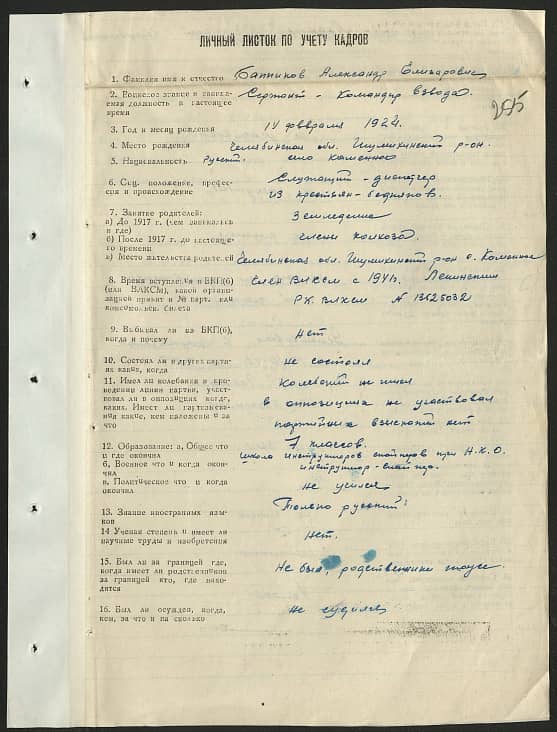 ЛИЧНЫЙ ЛИСТОК ПО УЧЕТУ КАДРОВ
1. Фамилия имя и отчество Александр Елизарович
2. Воинское звание и занима- Сержант - Командир взвода.
емая должность в настоящее
время
3. Год и месяц рождения IV февраля 1924.
4. Место рождения Челябинская обл. р-он.
5. Национальность Русск. село Каменное
6. Соц. положение, профес- Служащий - диспетчер
сия и происхождение из крестьян-бедняков.
7. Занятие родителей: Земледелие
а) До 1917 г. (чем занимались
и где)
б) После 1917 до настояще- члены колхоза.
го времени
в) Место жительства родителей Челябинская обл. р-он с. Каменное
8. Время вступления в ВКП(б) член ВЛКСМ с 1941. Ленинским
(или ВЛКСМ), какой органи-
зацией принят и № парт. или РК ВЛКСМ № 13625032
комсомольск. билета
9. Выбывал ли из ВКП(б), нет
когда и почему
10. Состоял ли в других парти- не состоял
ях каких, когда
11. Имел ли колебания в про- Колебаний не имел
ведении линии партии, участ-
вовал ли в оппозициях когда, в оппозициях не участвовал
каких. Имеет ли партвзыска-
ния какие, кем наложены и за партийных взысканий нет
что
12. Образование: а, Общее что 7 классов.
и где окончил школа инструкторов снайперов при Н.К.О.
б, Военное что и когда окон- инструктор-снайпер.
чил
в, Политическое что и когда не учился
окончил
13. Знание иностранных язы- Только русский
ков
14 Ученая степень и имеет ли Нет.
научные труды и изобретения
15. Был ли за границей где,
когда имеет ли родственников Не был, родственники тоже.
за границей кто, где нахо-
дится
16. Был ли осужден, когда, не судился
кем, за что и на сколько